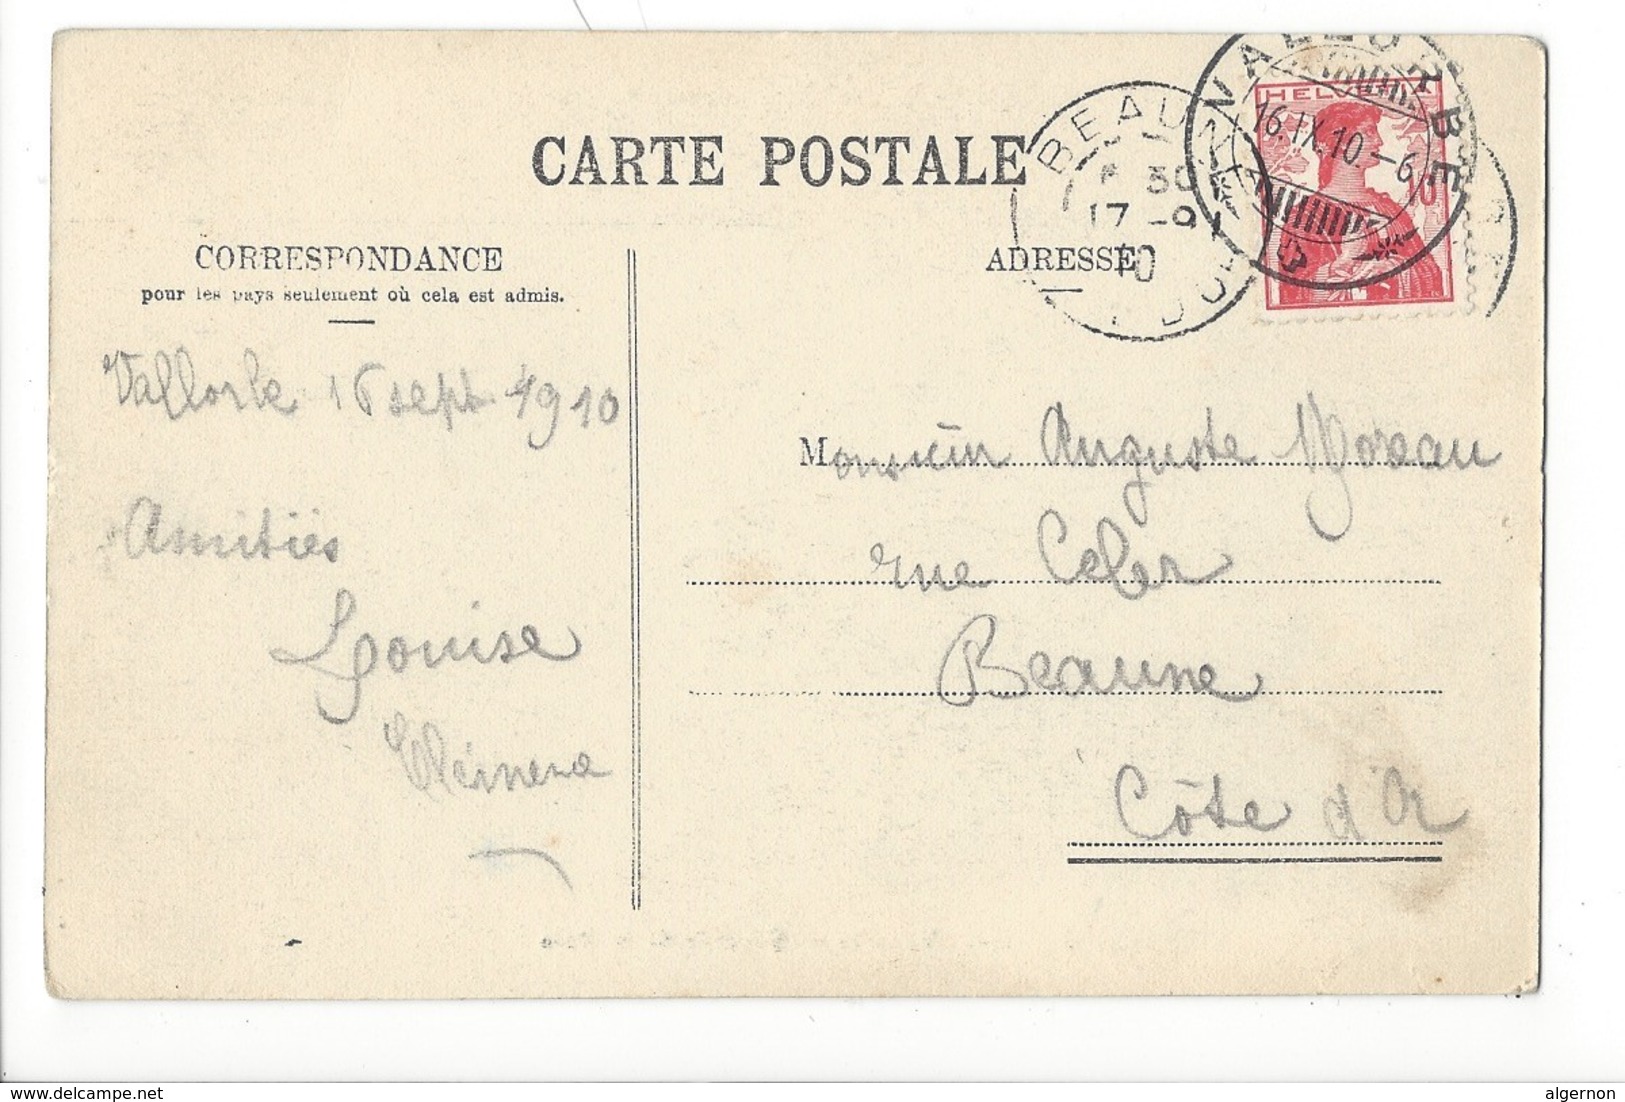 CARTE POSTALE
CORRESPONDANCE
pour les pays seulement où cela est admis.
ADRESSE
HELVETIA
VALLORBE
16.IX.10-6
BEAUNE
17-9
10
Vallorbe 16 sept 1910
Amitiés
Louise
Monsieur Auguste Moreau
rue Celer
Beaune
Côte d'Or
www.delcampe.net
algernon